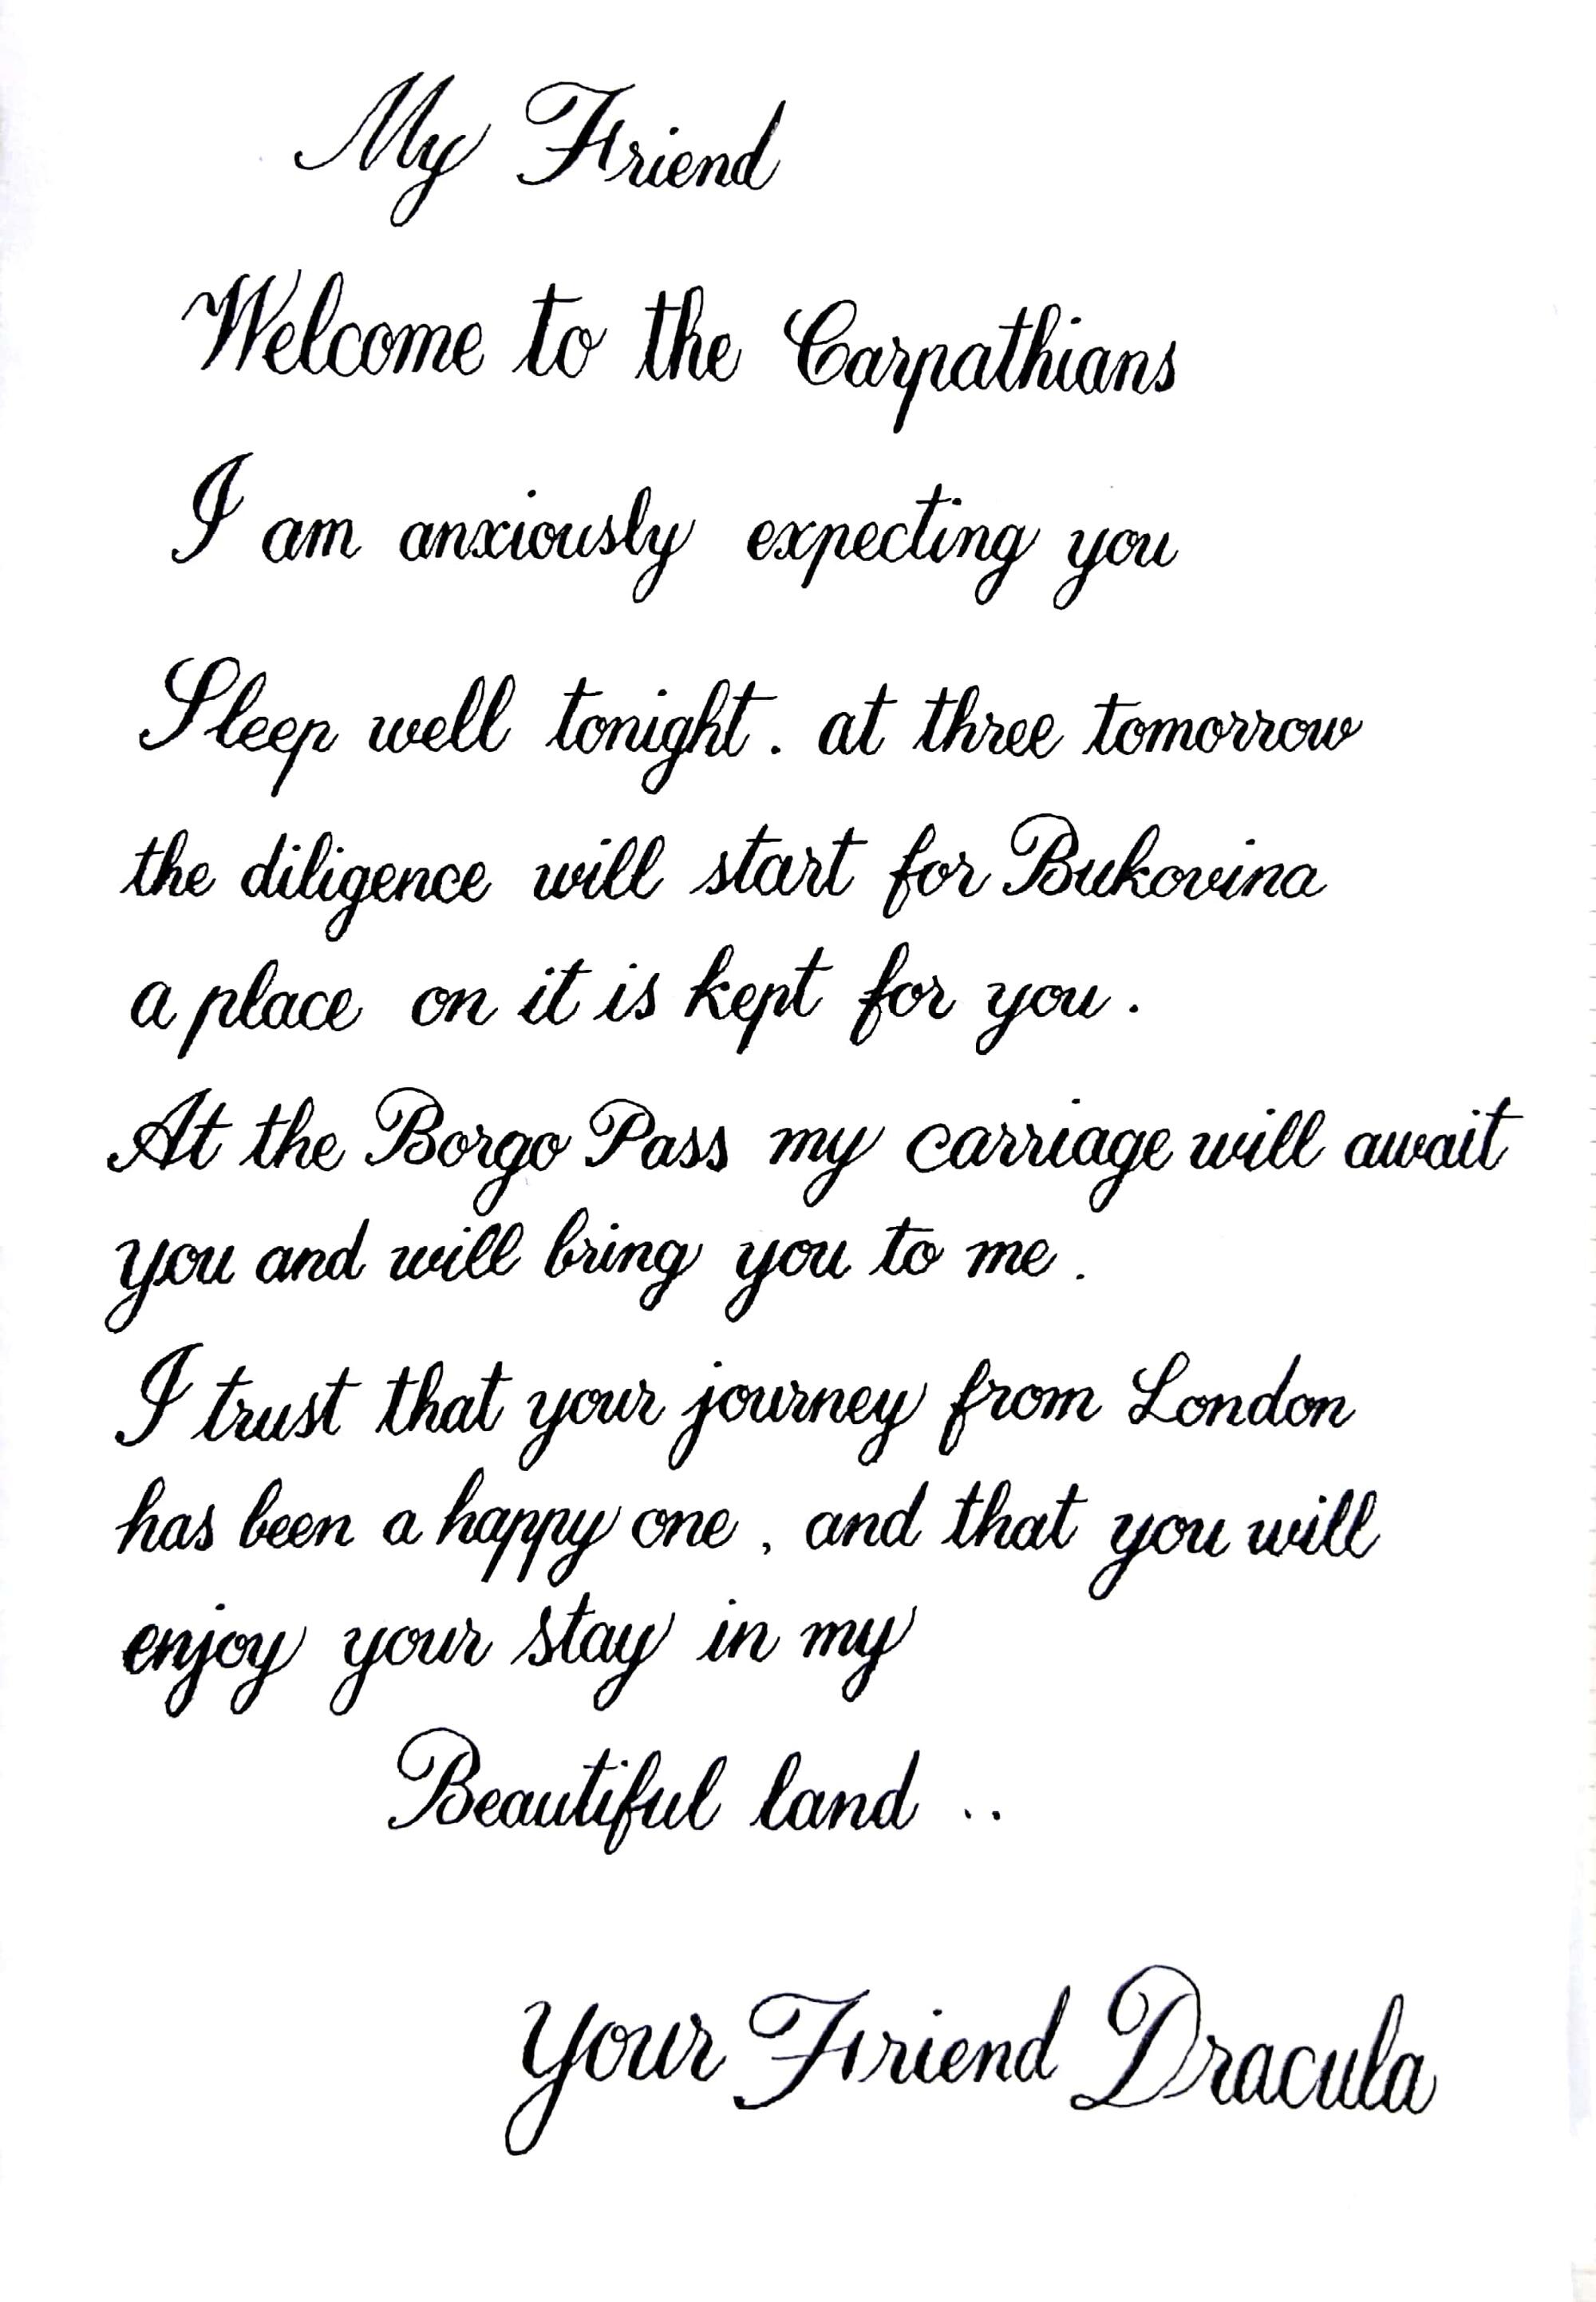 My Friend
Welcome to the Carpathians
I am anxiously expecting you
Sleep well tonight. at three tomorrow
the diligence will start for Bukovina
a place on it is kept for you.
At the Borgo Pass my carriage will await
you and will bring you to me.
I trust that your journey from London
has been a happy one, and that you will
enjoy your stay in my
Beautiful land ..
Your Friend Dracula